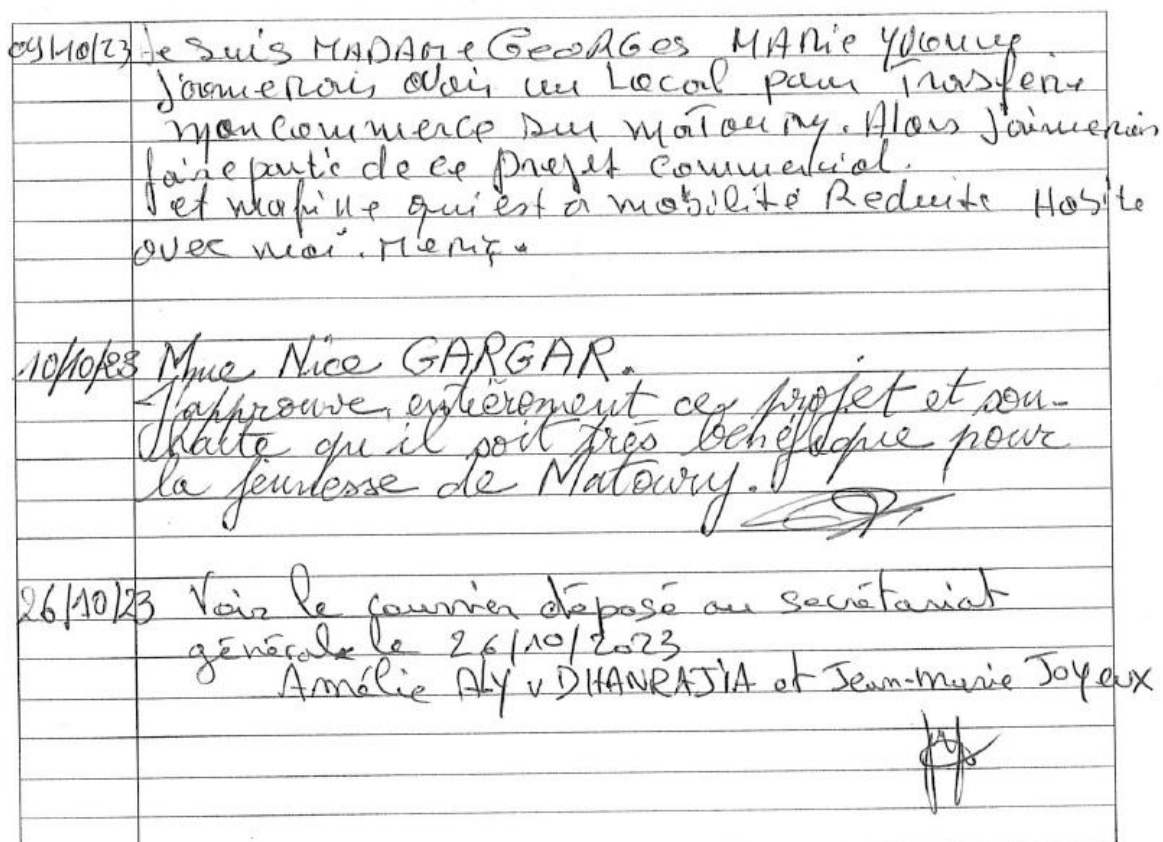 09/10/23 Je suis MADAMe GeoRGes MARie Yvonne.
J'aimerais avoir un Local pour Trasferer
mon commerce sur matoury. Alors J'aimerais
faire partie de ce projet commercial.
et ma fille qui est a mobilité Reduite Habite
avec moi. Merci.
10/10/23 Mme Nice GARGAR.
J'approuve entièrement ce projet et sou-
haite qu'il soit très bénéfique pour
la jeunesse de Matoury.
26/10/23 Voir le courrier déposé au secrétariat
générale le 26/10/2023
Amélie ALY v DHANRAJIA et Jean-Marie Joyeux